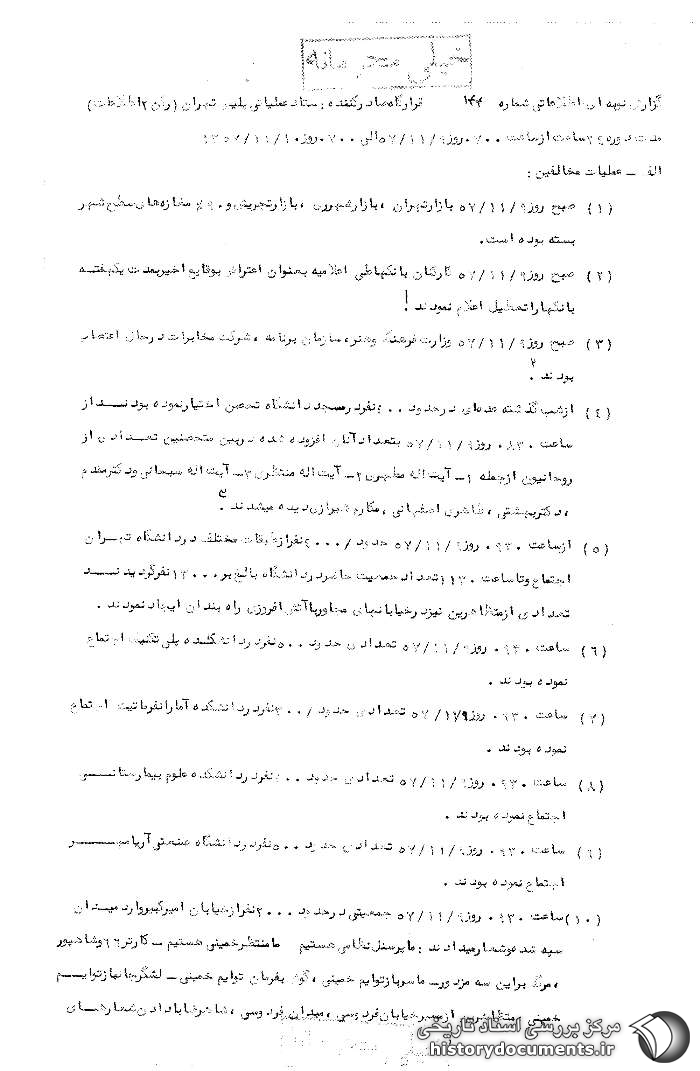 خیلی محرمانه
گزارش نوبه ای اطلاعاتی شماره ۱۴۴ قرارگاه صادر کننده : ستاد عملیاتی پلیس تهران (رکن ۲ اطلاعات)
مدت دوره ۲۴ ساعت از ساعت ۰۷۰۰ روز ۵۷/۱۱/۹ الی ۰۷۰۰ روز ۱۳۵۷/۱۱/۱۰
الف – عملیات مخالفین :
(۱) صبح روز ۵۷/۱۱/۹ بازار تهران ، بازار شهرری ، بازار تجریش و مغازه های سطح شهر
بسته بوده است .
(۲) صبح روز ۵۷/۱۱/۹ کارکنان بانکها طی اعلامیه بعنوان اعتراض بوقایع اخیر بمدت یکهفته
بانکها را تعطیل اعلام نمودند !
(۳) صبح روز ۵۷/۱۱/۹ وزارت فرهنگ و هنر ، سازمان برنامه ، شرکت مخابرات در حال اعتصاب
بودند ۲ .
(٤) از شب گذشته عده ای در حدود نفر در مسجد دانشگاه تحصن اختیار نموده بودند از
ساعت ۰۸۳۰ روز ۵۷/۱۱/۹ بتعداد آنان افزوده شده در بین متحصنین تعدادی از
روحانیون از جمله ۱– آیت اله مطهری ۲– آیت اله منتظری ۳– آیت اله سبحانی و دکتر مفتح
، دکتر بهشتی ، طاهری اصفهانی ، مکارم شیرازی دیده میشدند ۳ .
(۵) از ساعت ۰۹۳۰ روز ۵۷/۱۱/۹ حدود نفر از طبقات مختلف در دانشگاه تهران
اجتماع و تا ساعت ۱۱۳۰ تعداد جمعیت حاضر در دانشگاه بالغ بر نفر گردیدند
تعدادی از متظاهرین نیز در خیابانهای مجاور با آتش افروزی راه بندان ایجاد نمودند .
(۶) ساعت ۰۹۳۰ روز ۵۷/۱۱/۹ تعدادی حدود ۵۰۰ نفر در دانشکده پلی تکنیک اجتماع
نموده بودند .
(۷) ساعت ۰۹۳۰ روز ۵۷/۱۱/۹ تعدادی حدود نفر در دانشکده آمار انفورماتیک اجتماع
نموده بودند .
(۸) ساعت ۰۹۳۰ روز ۵۷/۱۱/۹ تعدادی حدود نفر در دانشکده علوم بیمارستانی
اجتماع نموده بودند .
(۹) ساعت ۰۹۳۰ روز ۵۷/۱۱/۹ تعدادی حدود ۵۰۰ نفر در دانشگاه صنعتی آریامهر
اجتماع نموده بودند .
(۱۰) ساعت ۰۹۳۰ روز ۵۷/۱۱/۹ جمعیتی در حدود ۲۰۰۰ نفر از خیابان امیرکبیر وارد میدان
سپه شده و شعار میدادند : ما پرسنل نظامی هستیم ما منتظر خمینی هستیم – کارتر و شاهپور
، مرگ بر این سه مزدور – ما سرباز توایم خمینی ، گوش بفرمان توایم خمینی – لشگر جانباز توایم
خمینی متظاهرین از مسیر خیابان فردوسی ، میدان فردوسی ، شاهرضا با دادن شعارهای
مرکز بررسی اسناد تاریخی
historydocuments.ir